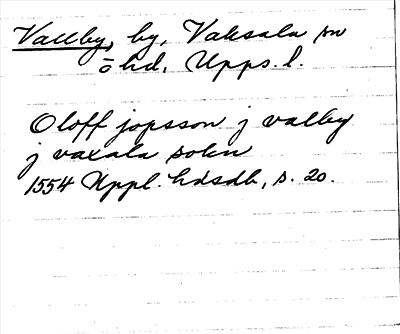 Vallby, by, Vaksala sn
ō hd, Upps. l.
Oloff jopsson j valby
j vaxala sokn
1554 Uppl. hdsdb, s. 20.